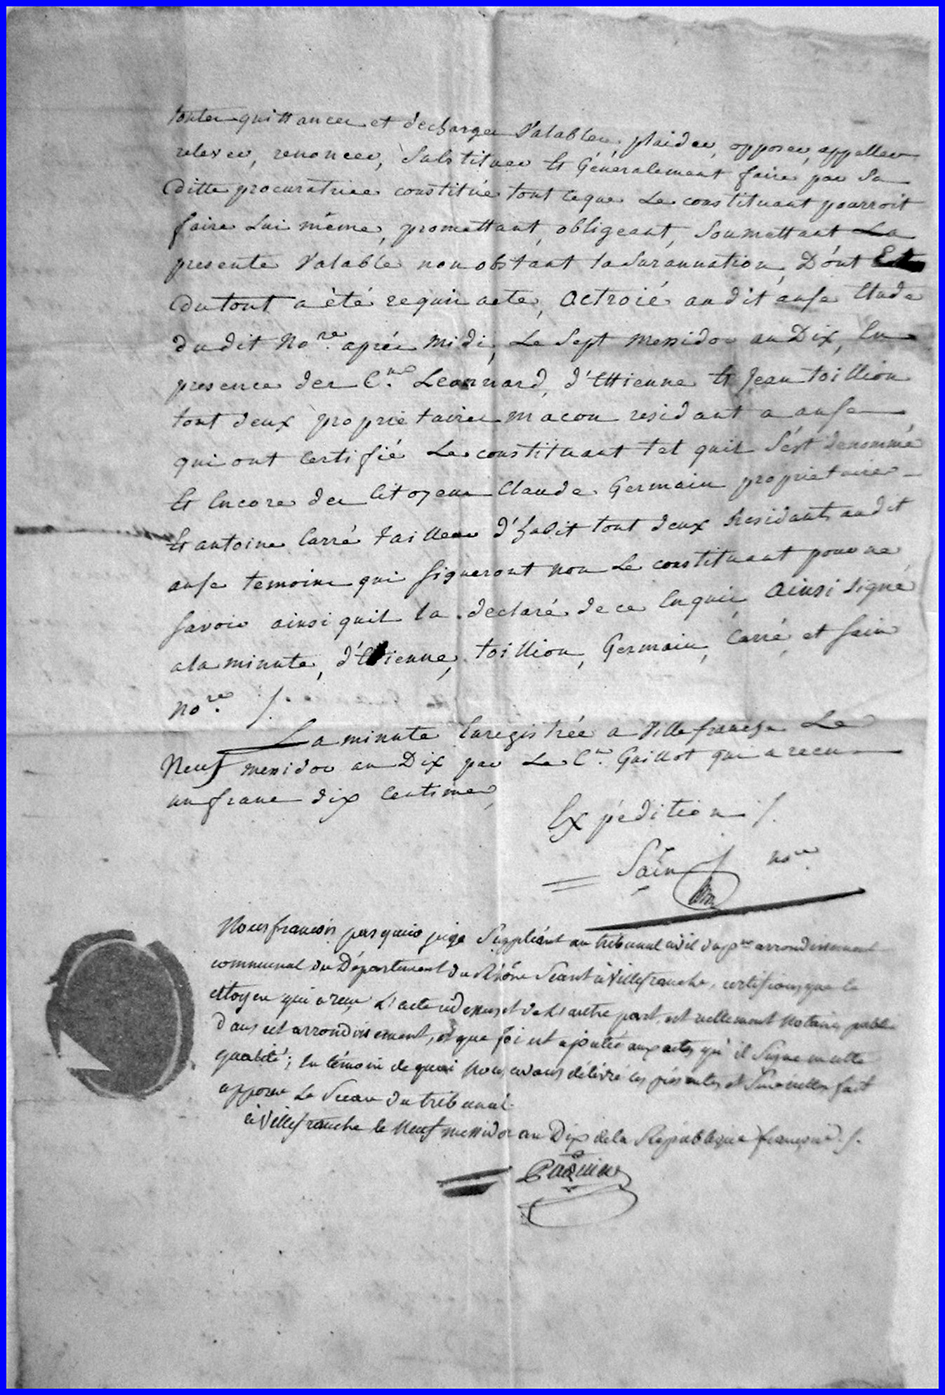 toutes quittances et decharges Valables, plaider, opposer, appeller
relever, renoncer, Substituer Et Généralement faire par Sa
ditte procuratrice constituée tout ceque Le constituant pourroit
faire Lui même, promettant, obligeant, Soumettant La
presente Valable nonobstant la Surannation, Dont
Du tout a été requis acte, octroié audit anse Etude
dudit No.re après midi, Le Sept Messidor an Dix, En
presence des C.ns Leonnard, d'Ettienne Et Jean toillion
tout deux proprietaires macon residant a anse
qui ont Certifié Le constituant tel quil S'est denommé
Et Encore des Citoyens Claude Germain proprietaire
Et antoine Carré Tailleur d'habit tout deux Residants audit
anse temoins qui signeront non Le constituant pour ne
savoir ainsi quil la declaré de ce Enquis, Ainsi Signé
a la minute, d'Ettienne, toillion, Germain, Carré, et Sain
no.re /.
La minute Enregistrée a Villefranche Le
Neuf messidor an Dix par Le C.en Guillot qui a recu
un franc dix Centimes,
Expédition /.
Sain no.re
Nous françois pasquier juge Suppléant au tribunal civil du p.er arrondissement
communal du Département du Rhône Séant à Villefranche, certifions que le
citoyen qui a reçu L'acte ci dessus et de L'autre part est réellement Notaire public
dans cet arrondissement, et que foi est ajoutée aux actes qu'il Signe en cette
qualité; En témoin de quoi Nous avons délivré ces présentes et Sur icelles fait
apposer Le Sceau du tribunal.
à Villefranche le Neuf messidor an Dix de la République française /.